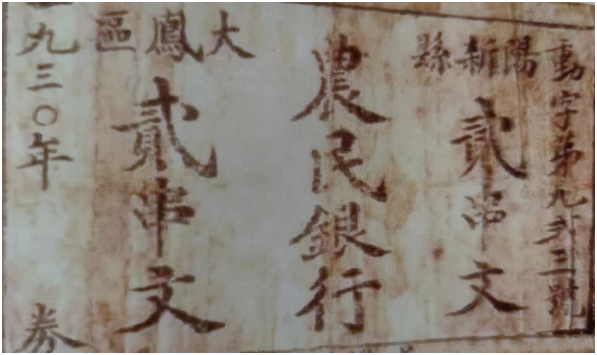 動字第九三號
陽新縣
貳串文
農民銀行
大鳳區
貳串文
一九三〇年
券